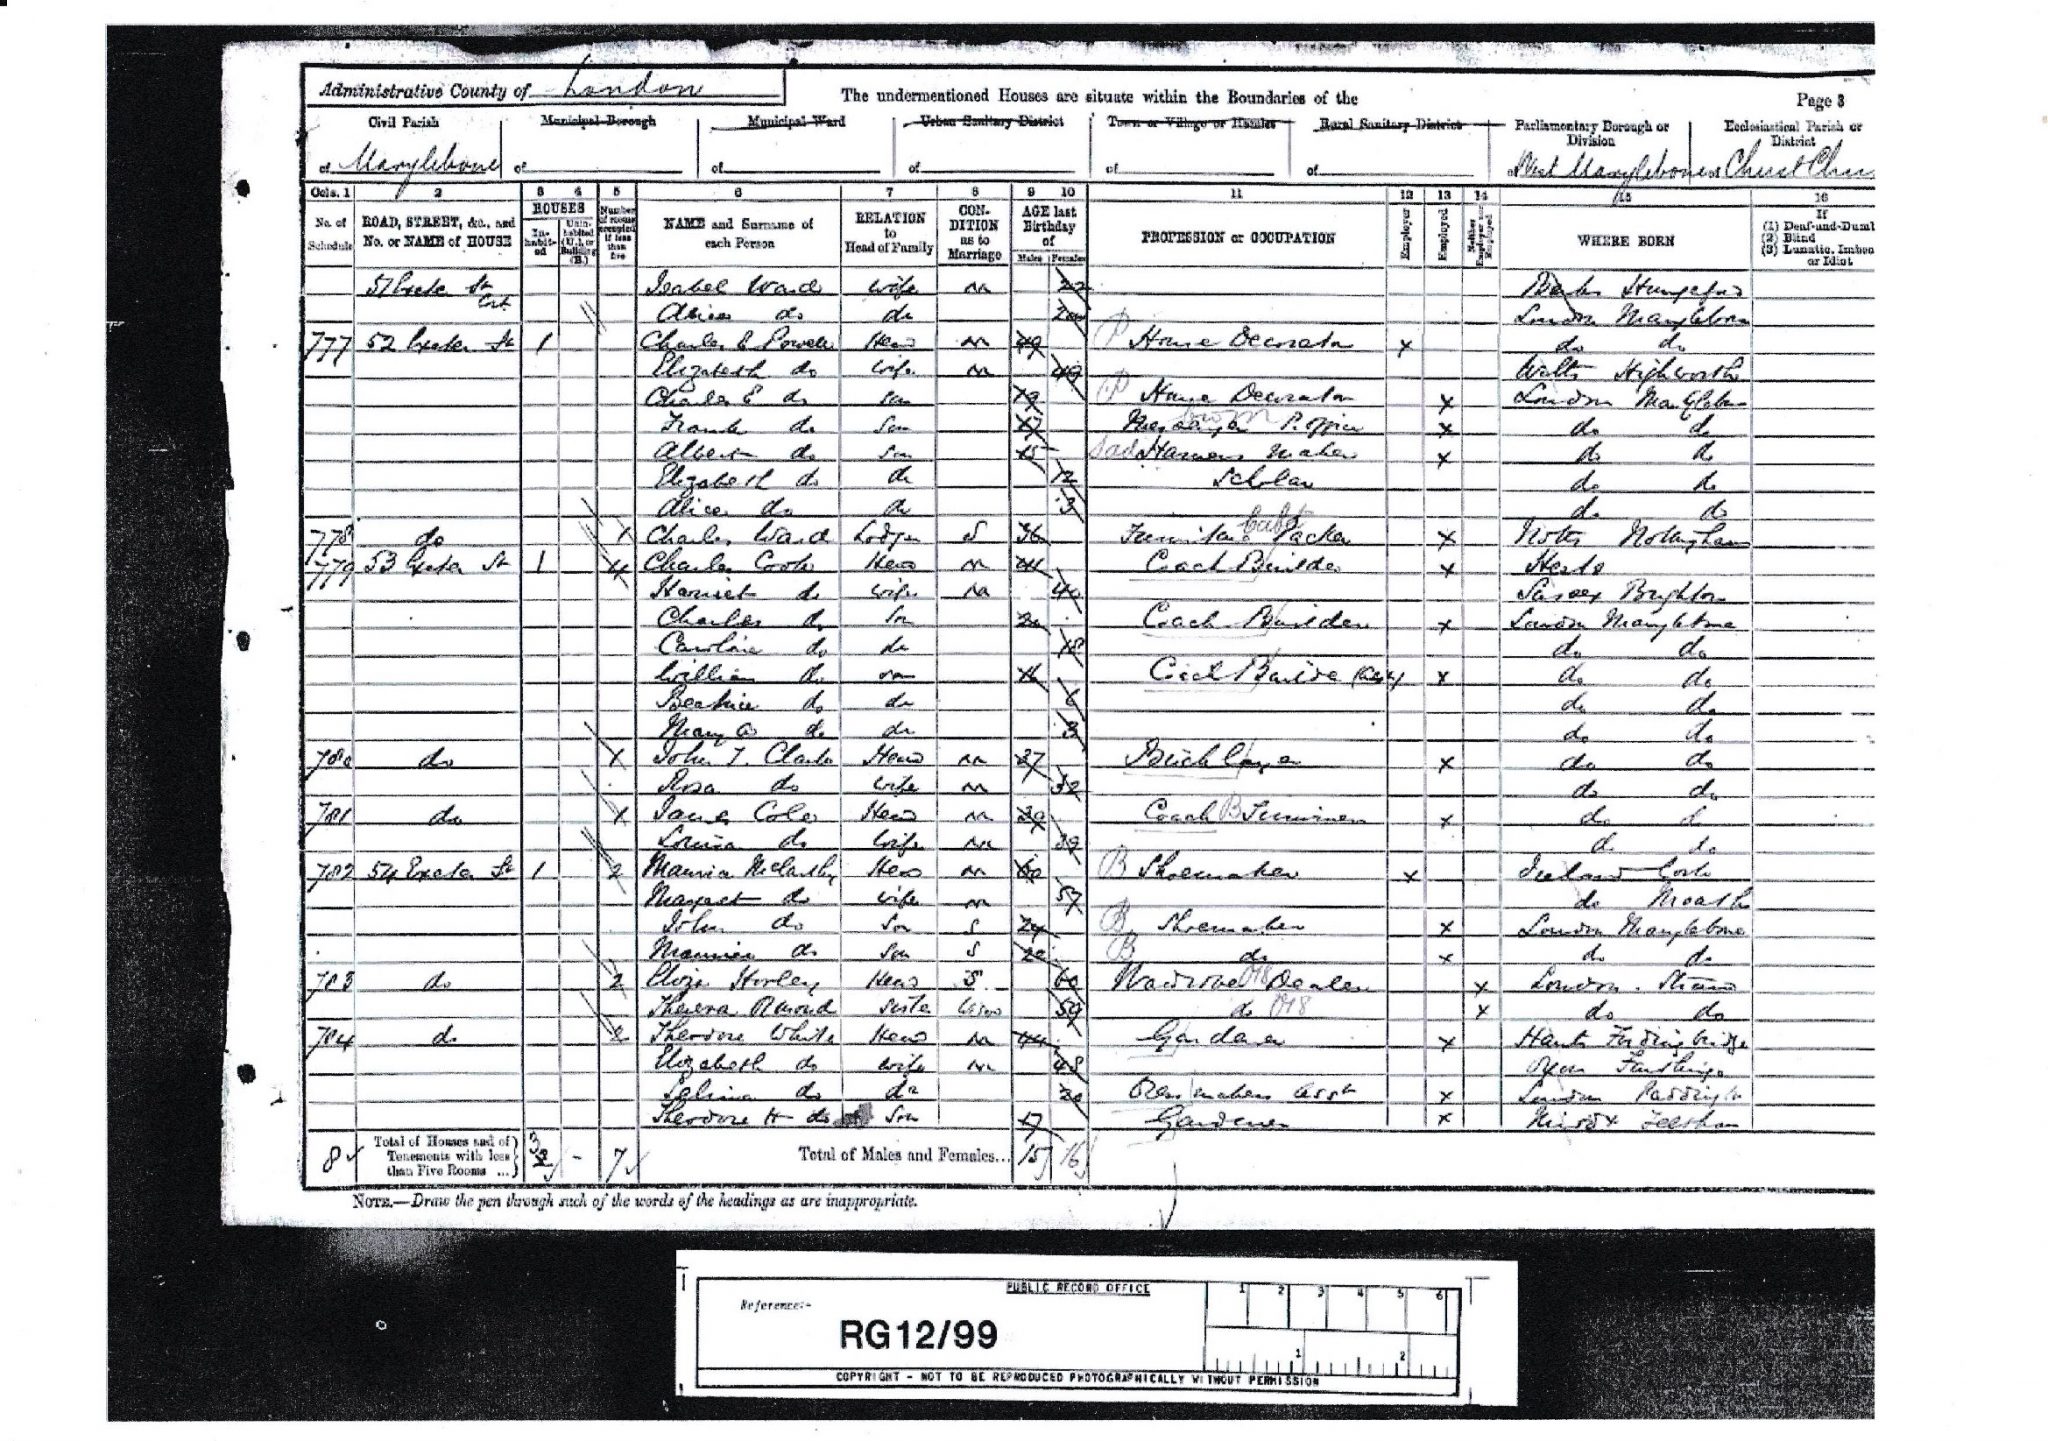 Administrative County of London
The undermentioned Houses are situate within the Boundaries of the
Page 3
Civil Parish Municipal Borough Municipal Ward Urban Sanitary District Town or Village or Hamlet Rural Sanitary District Parliamentary Borough or Division Ecclesiastical Parish or District
of Marylebone of of of of of of West Marylebone of Christ
Cols. 1 2 3 4 5 6 7 8 9 10 11 12 13 14 15 16
No. of Schedule ROAD, STREET, &c., and No. or NAME of HOUSE HOUSES In-habit-ed Unin-habited (U.), or Building (B.) Number of rooms occupied if less than five NAME and Surname of each Person RELATION to Head of Family CON-DITION as to Marriage AGE last Birthday of Males Females PROFESSION or OCCUPATION Employer Employed Neither Employer nor Employed WHERE BORN If (1) Deaf-and-Dumb (2) Blind (3) Lunatic, Imbec or Idiot
51 Exeter St Isabel Ward wife m 22 Berks
Cont. Alice do da London Marylebone
777 52 Exeter St 1 Charles Powell Head m 49 House Decorator x do do
Elizabeth do wife m 49 Wilts Highworth
Charles E do son 19 House Decorator x London Marylebone
Frank do Son 17 Messenger P. Office x do do
Albert do son 15 Harness Maker x do do
Elizabeth do da 12 Scholar do do
Alice do da 3 do do
778 do 1 Charles Ward Lodger S 36 Furniture Packer x Notts Nottingham
779 53 Exeter St 1 4 Charles Cook Head m 44 Coach Builder x Herts
Harriet do wife m 40 Sussex Brighton
Charles do Son 20 Coach Builder x London Marylebone
Caroline do da 18 do do
William do son 16 Coach x do do
Beatrice do da 6 do do
Mary A do da 3 do do
780 do 1 John T. Clark Head m 37 Bricklayer x do do
Rosa do wife m 32 do do
781 do 1 James Cole Head m 39 Coach Trimmer x do do
Louisa do wife m 39 do do
782 54 Exeter St 1 2 Maurice McCarthy Head m 60 Shoemaker x Ireland Cork
Margaret do wife m 57 do Meath
John do Son S 24 Shoemaker x London Marylebone
Maurice do son S 20 do x do do
783 do 2 Eliza Horley Head S 60 Wardrobe Dealer x London Strand
Theresa sister Widow 59 do x do do
784 do 2 Theodore White Head m 44 Gardener x Hants Fordingbridge
Elizabeth do wife m 48
Selina do da 20 Dressmakers Asst x London Paddington
Theodore H do Son 17 Gardener x
8 Total of Houses and of Tenements with less than Five Rooms ... 3 - 7 Total of Males and Females... 15 16
NOTE.—Draw the pen through such of the words of the headings as are inappropriate.
PUBLIC RECORD OFFICE
1 2 3 4 5 6
Reference:-
RG12/99
1 2
COPYRIGHT - NOT TO BE REPRODUCED PHOTOGRAPHICALLY WITHOUT PERMISSION